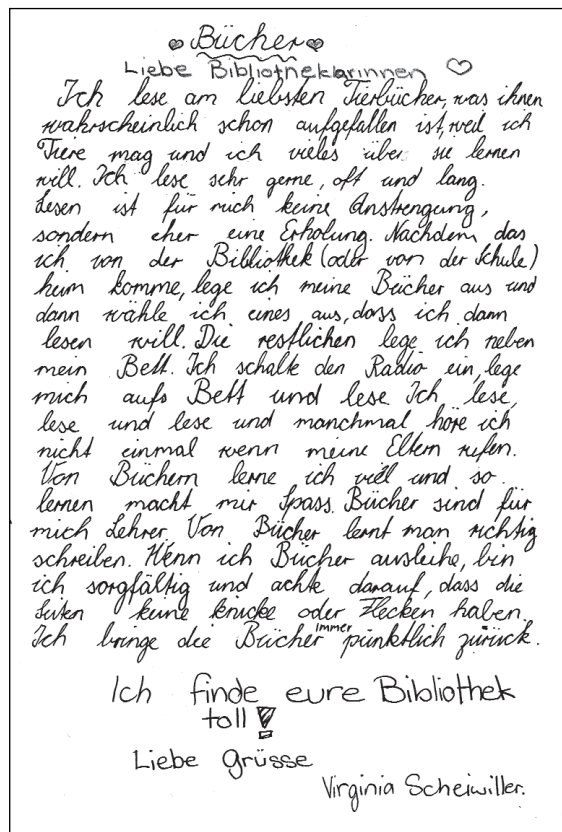 Bücher
Liebe Bibliotheklarinnen
Ich lese am liebsten Tierbücher, was ihnen
wahrscheinlich schon aufgefallen ist, weil ich
Tiere mag und ich vieles über sie lernen
will. Ich lese sehr gerne, oft und lang.
Lesen ist für mich keine Anstrengung,
sondern eher eine Erholung. Nachdem das
ich von der Bibliothek (oder von der Schule)
heim komme, lege ich meine Bücher aus und
dann wähle ich eines aus, dass ich dann
lesen will. Die restlichen lege ich neben
mein Bett. Ich schalte den Radio ein, lege
mich aufs Bett und lese. Ich lese,
lese und lese und manchmal höre ich
nicht einmal wenn meine Eltern rufen.
Von Büchern lerne ich viel und so
lernen macht mir Spass. Bücher sind für
mich Lehrer. Von Bücher lernt man richtig
schreiben. Wenn ich Bücher ausleihe, bin
ich sorgfältig und achte darauf, dass die
Seiten keine knicke oder Flecken haben.
Ich bringe die Bücher immer pünktlich zurück.
Ich finde eure Bibliothek
toll!
Liebe Grüsse
Virginia Scheiwiller.